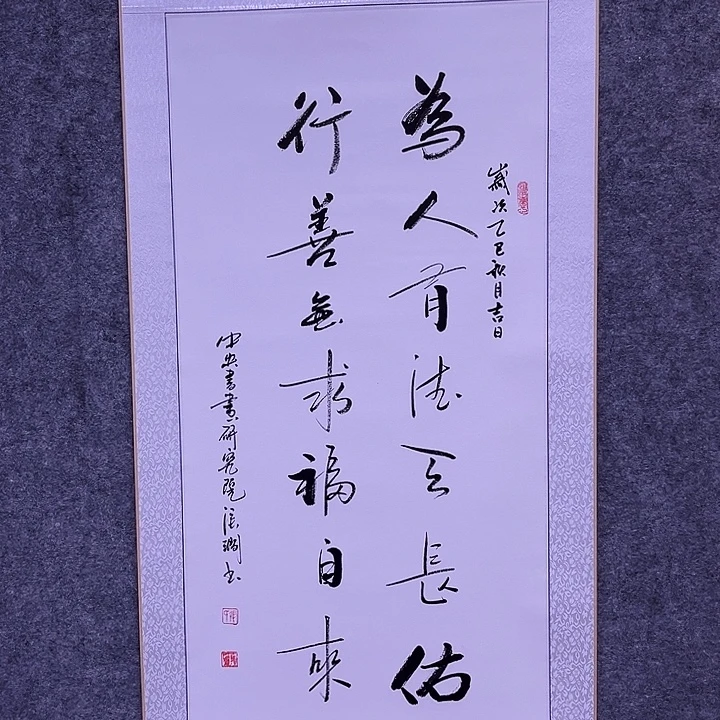 歲次乙巳秋月吉日
為人有德天長佑
行善無求福自來
中央書畫研究院張潤書